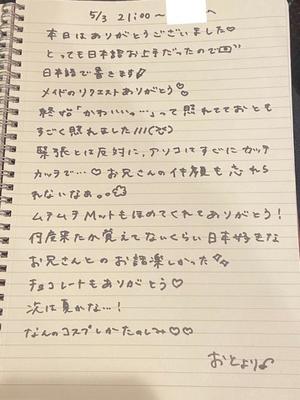 5/3 21:00〜 へ
本日はありがとうございました♡
とっても日本語お上手だったので
日本語で書きます
メイドのリクエストありがとう♡
終始「かわいいっ…」って照れてておとも
すごく照れました!!!
緊張とは反対に、アソコはすぐにカッチ
カッチで…♡お兄さんのイキ顔も忘れら
れないなぁ。。
ムチムチMattもほめてくれてありがとう!
何度来たか覚えてないくらい日本好きな
お兄さんとのお話楽しかった
チョコレートもありがとう♡
次は夏かな…!
なんのコスプレかたのしみ♡♡
おとより♪